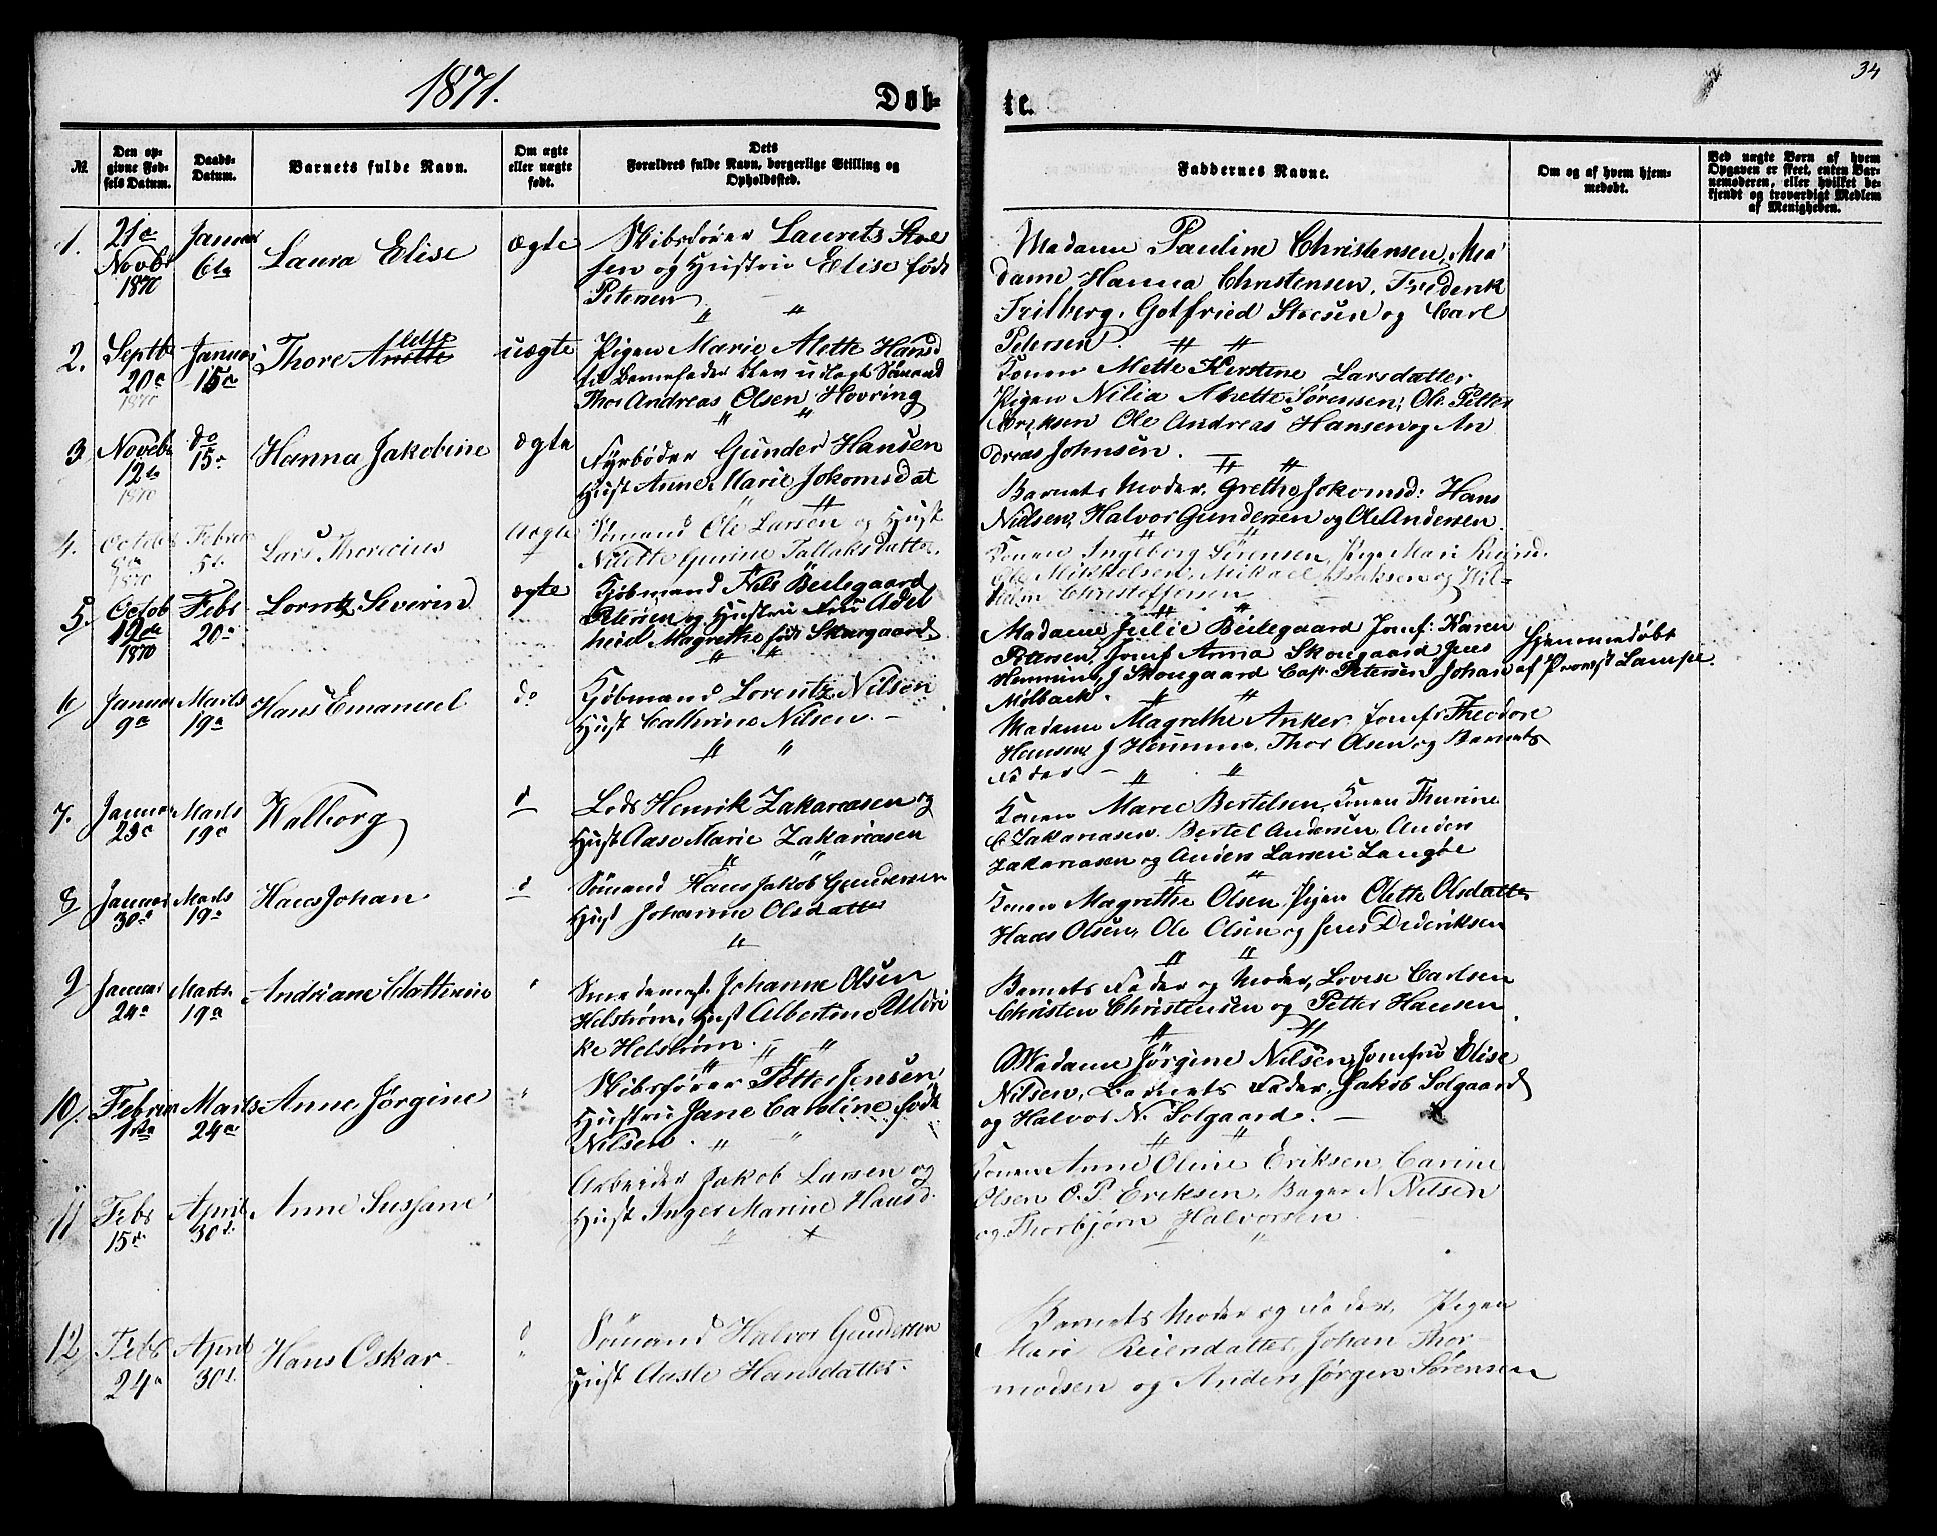 1871.
Døb-
te.
34
№
Den op-
givne Fød-
sels Datum.
Daabs-
Datum.
Barnets fulde Navn.
Om ægte
eller uægte
født.
Dets
Forældres fulde Navn, borgerlige Stilling og
Opholdssted.
Faddernes Navne.
Om og af hvem hjem-
medøbt.
Ved uægte Børn af hvem
Opgaven er skeet, enten Bar-
nemoderen, eller hvilket be-
kjendt og troværdigt Medlem
af Menigheden.
1.
21de
Novbr
1870
Januar
6te
Laura Elise
Ægte
Skibsfører Laurets Stee
sen og Hustru Elise født
Petersen
Madame Pauline Christensen, Ma
dame Hanna Christensen, Frederik
Frilberg, Gotfried Steesen og Carl
Petersen
2.
Septbr
20de
1870
Januar
15de
Thore Anette
uægte
Pigen Marie Alette Hansd
til Barnefader blev udlagt Sömand
Thor Andreas Olsen Hovring
Konen Mette Kirstine Larsdatter
Pigen Nilia Anette Sørensen, Ole Petter
Eriksen Ole Andreas Hansen og An
dreas Johnsen.
3
Novebr
12te
1870
do
15de
Hanna Jakobine
ægte
Fyrbøder Gunder Hansen
Hust Anne Marie Jokomsdat
Barnets Moder, Grethe Jokomsd: Hans
Nielsen, Halvor Gundersen og Ole Andersen
4.
October
1870
Februar
5te
Lars Thoricius
Uægte
Sömand Ole Larsen og Hust
Nilette Gurine Tallaksdatter
Konen Ingeborg Sørensen, Pige Mari Reiersd.
Ole Mikkelsen, Mikael Isaksen og Wil-
helm Christoffersen
5.
Octob
12te
1870
Febr
20de
Lorntz Severin
ægte
Kjøbmand Nils Beilegaard
Petersen og Hustru Fru Adel
heid Magrethe født Skougaard
Madame Julie Beilegaard Jomf: Karen
Petersen, Jomf Anna Skougaard Jens
Henning, J Skougaard Capt Petersen Johan
Mølback.
Hjemmedøbt
af Provst Lampe.
6
Januar
9de
Marts
19de
Hans Emanuel
do
Kjøbmand Lorentz Nilsen
Hust Cathrine Nilsen. —
Madame Magrethe Anker, Jomfr Theodore
Hansen J Hemme, Thor Olsen og Barnets
Fader —
7.
Januar
23de
Marts
19de
Walborg
d
Lods Henrik Zakariasen og
Hust Aase Marie Zakariasen
Konen Maree Bertelsen, Konen Thurine
C. Zakariasen. Bertel Andersen, Anders
Zakariasen og Anders Larsen Langöe
8
Januar
30te
Marts
19de
Hans Johan
d
Sømand Hans Jakob Gundersen
Hust Johanne Olsdatter
Konen Magrethe Olsen, Pigen Olette Olsdatter
Hans Olsen, Ole Olsen og Jens Dederiksen
9
Januar
24de
Marts
19de
Andriane Cathrine
Smedemest. Johanne Olsen
Helstrøm, Hust Albertine Ulri
ke Helstrøm.
Barnets Fader og Moder, Lovise Carlsen
Christen Christensen og Petter Hansen
10.
Februar
1ste
Marts
24de
Anne Jørgine
Skibsfører Petter Jensen,
Hustru Jane Caroline født
Nilsen.
Madame Jørgine Nilsen, Jomfru Elise
Nilsen, Barnets Fader, Jakob Solgaard
og Halvor N. Solgaard. —
11
Febr
15de
April
30te
Anne Sussane
Arbeider Jakob Larsen og
Hust Inger Marine Hansd.
Konen Anne Oline Eriksen, Carine
Olsen O. P. Eriksen, Bager N Nilsen
og Thorbjørn Halvorsen
12
Febr
24de
April
30te
Hans Oskar
d
Sømand Halvor Gundersen
Hust Aasle Hansdatter.
Barnets Moder og Fader, Pigen
Mari Reiersdatter, Johan Thor-
modsen og Anders Jørgen Sørensen